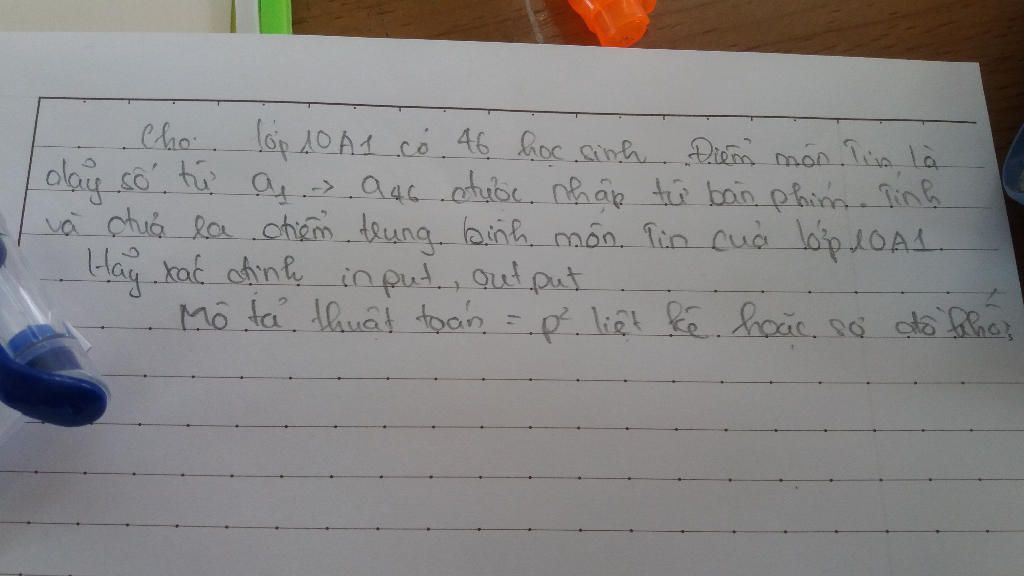 Cho lớp 10A1 có 46 học sinh. Điểm môn Tin là
dãy số từ a₁ → a₄₆ được nhập từ bàn phím. Tính
và đưa ra điểm trung bình môn Tin của lớp 10A1.
Hãy xác định input, output
Mô tả thuật toán = p² liệt kê hoặc sơ đồ khối